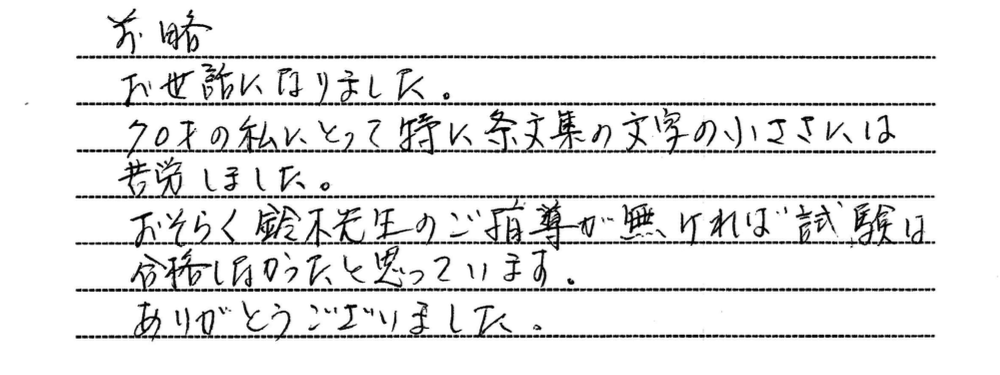 前略
お世話になりました。
70才の私にとって特に条文集の文字の小ささには
苦労しました。
おそらく鈴木先生のご指導が無ければ試験は
合格しなかったと思っています。
ありがとうございました。